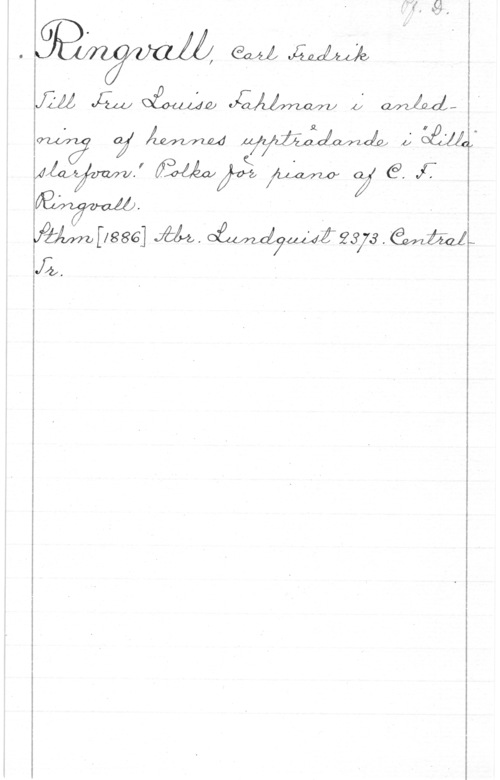 Öfr. D.
Ringvall, Carl Fredrik
Till Fru Louise Fahlman i anled-
ning af hennes uppträdande i "Lilla
slarfvan". Polka för piano af C. F.
Ringvall.
Sthm [1886] Abr. Lundquist 2373. Central-
Tr.